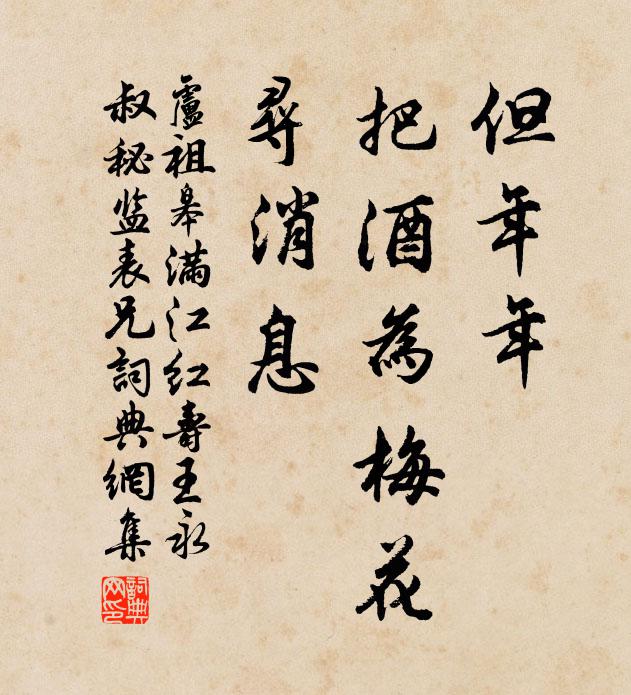 但年年
把酒為梅花
尋消息
盧祖皋滿江紅壽王永
叔秘监表兄詞典網集
詞典网印